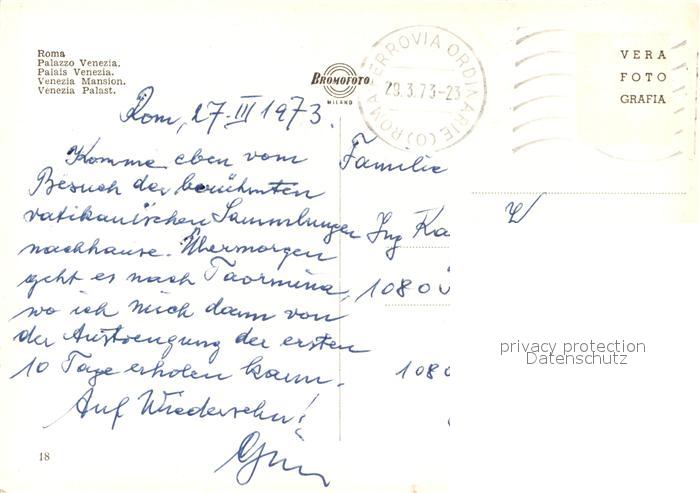 Roma
Palazzo Venezia.
Palais Venezia.
Venezia Mansion.
Venezia Palast.
BROMOFOTO
MILANO
ROMA FERROVIA ORDINARIE (C)
29.3.73-23
VERA
FOTO
GRAFIA
Rom, 27. III 1973.
Komme eben vom
Besuch der berühmten
vatikanischen Sammlungen
nachhause. Übermorgen
geht es nach Taormina,
wo ich mich dann von
der Anstrengung der ersten
10 Tage erholen kann.
Auf Wiedersehn!
Familie
Ing Ka
1080
108
W
privacy protection
Datenschutz
18